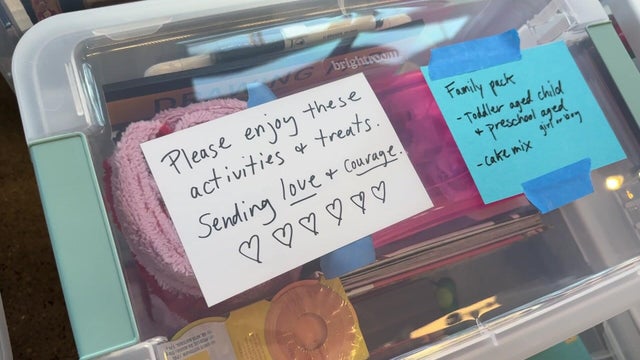 brightroom
DRAWING
Please enjoy these
activities & treats.
Sending love & courage.
♡ ♡ ♡ ♡ ♡ ♡
Family pack
- Toddler aged child
& preschool aged
girl or boy
- cake mix